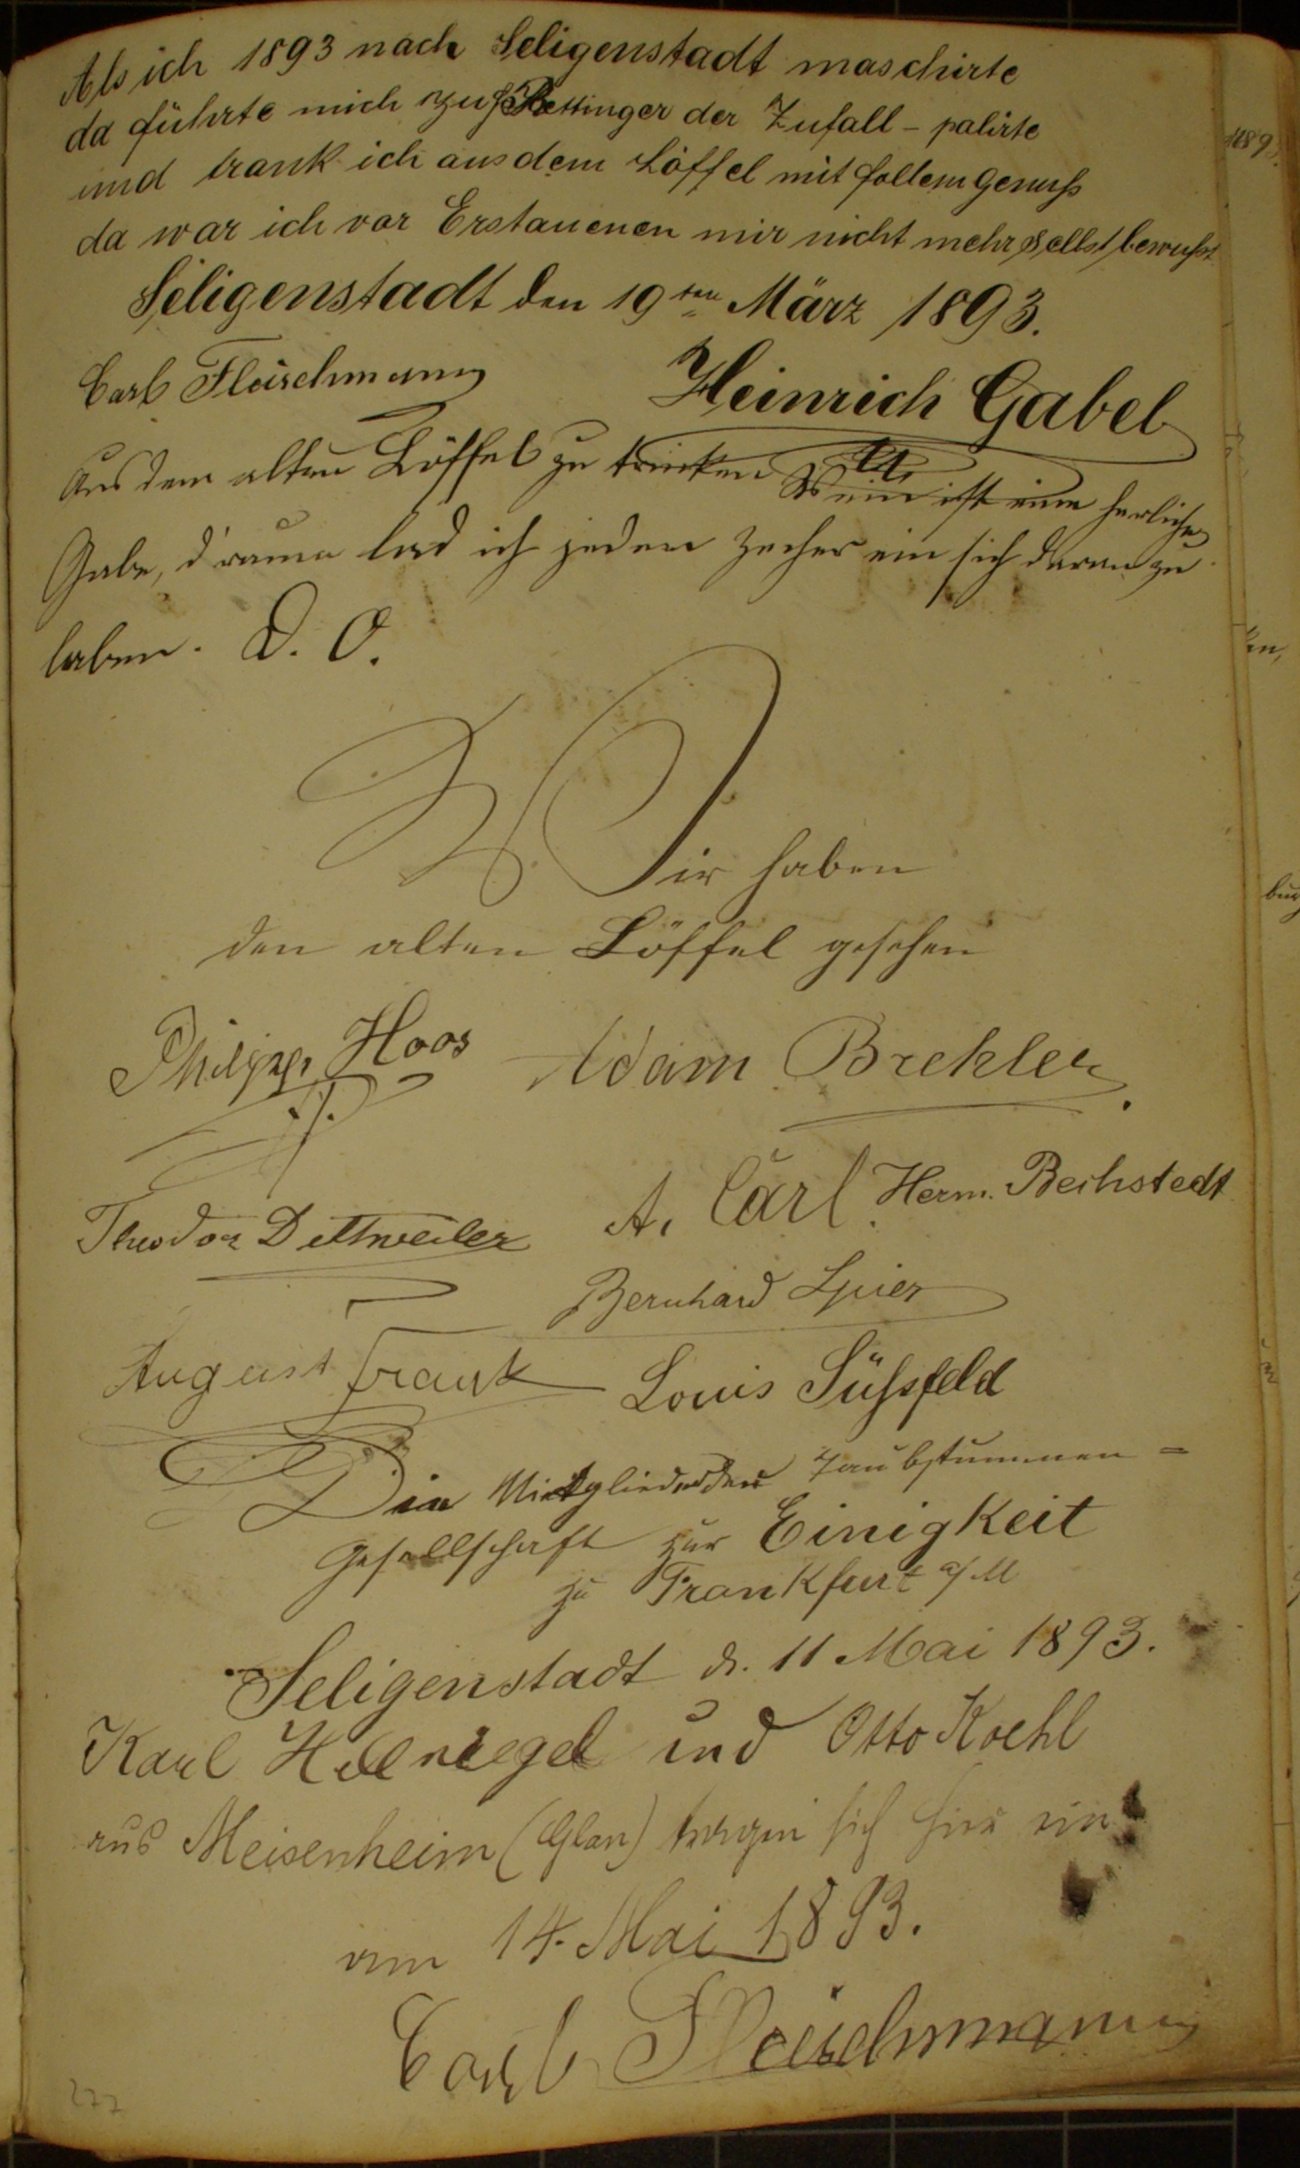 Als ich 1893 nach Seligenstadt maschirte
da führte mich zu Rettinger der Zufall - palirte
und trank ich aus dem Löffel mit follem genuß
da war ich vor Erstauenen mir nicht mehr selbst bewußt
Seligenstadt den 19ten März 1893.
Carl Fleischmann Heinrich Gabel
Aus dem alten Löffel zu trinken Wein ist eine herliche
Gabe, d'raum lad ich jeden Zecher ein sich daran zu
laben. D. O.
Wir haben
den alten Löffel gesehen
Philipp Hoos Adam Brehler
A. Carl. Herm. Bechstedt
Theodor Dettweiler
Bernhard Spier
August Frank Louis Süßfeld
Die Mitglieder der Taubstummen=
gesellschaft zur Einigkeit
zu Frankfurt a/M
Seligenstadt d. 11 Mai 1893.
Karl und Otto Koehl
aus Meisenheim (Glan) tragen sich hier ein
am 14. Mai 1893.
Carl Fleischmann
277